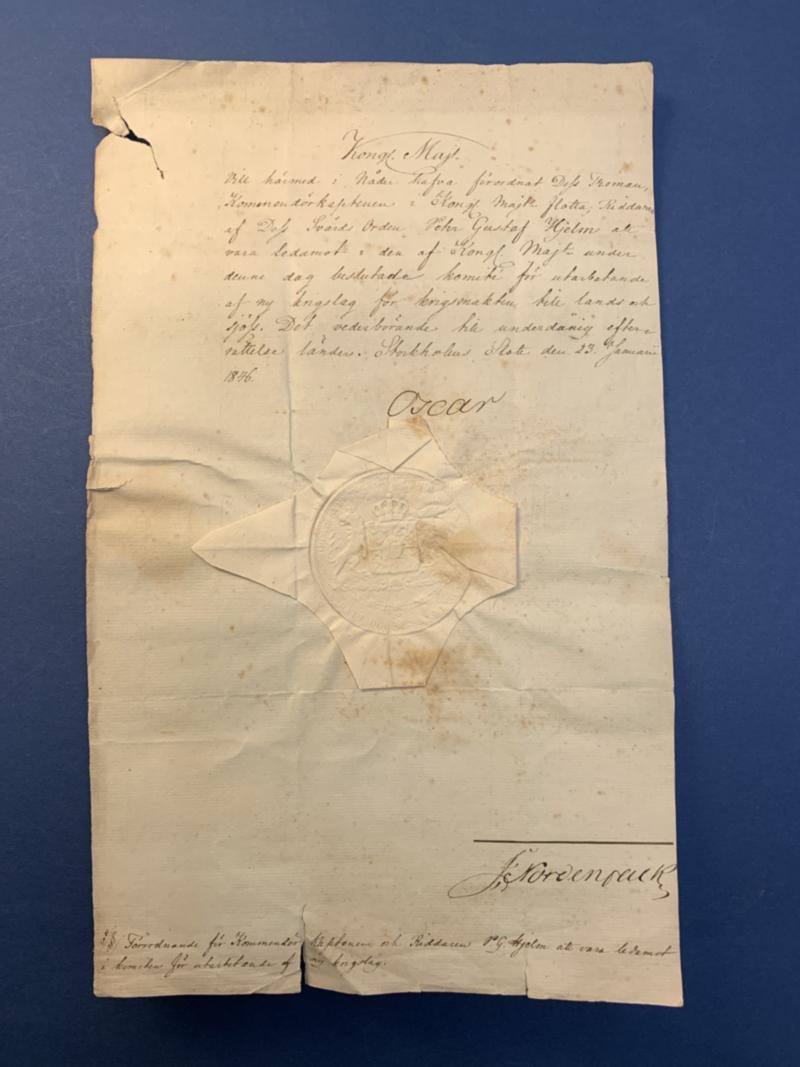 Kongl. Majt.
Vill härmed i Nåder hafva förordnat Dess Troman,
Kommendörkaptenen i Kongl Majts flotta, Riddaren
af Dess Svärds Orden Pehr Gustaf Hjelm att
vara ledamot i den af Kongl Majt. under
denne dag beslutade komité för utarbetande
af ny krigslag för krigsmakten till lands och
sjöss. Det vederbörande till underdånig efter-
rättelse länder. Stockholms Slott den 23. Januarii
1846.
Oscar
Nordenfalk
Förordnande för Kommendörkaptenen och Riddaren P. G. Hjelm att vara ledamot
i komitén för utarbetande af ny krigslag.